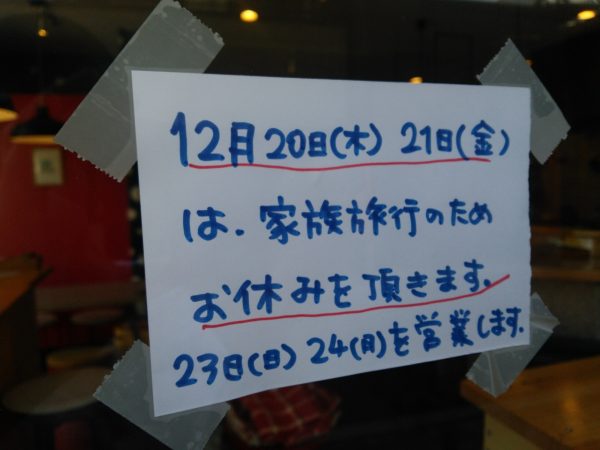 12月20日(木) 21日(金)
は、家族旅行のため
お休みを頂きます。
23日(日)24(月)を営業します。